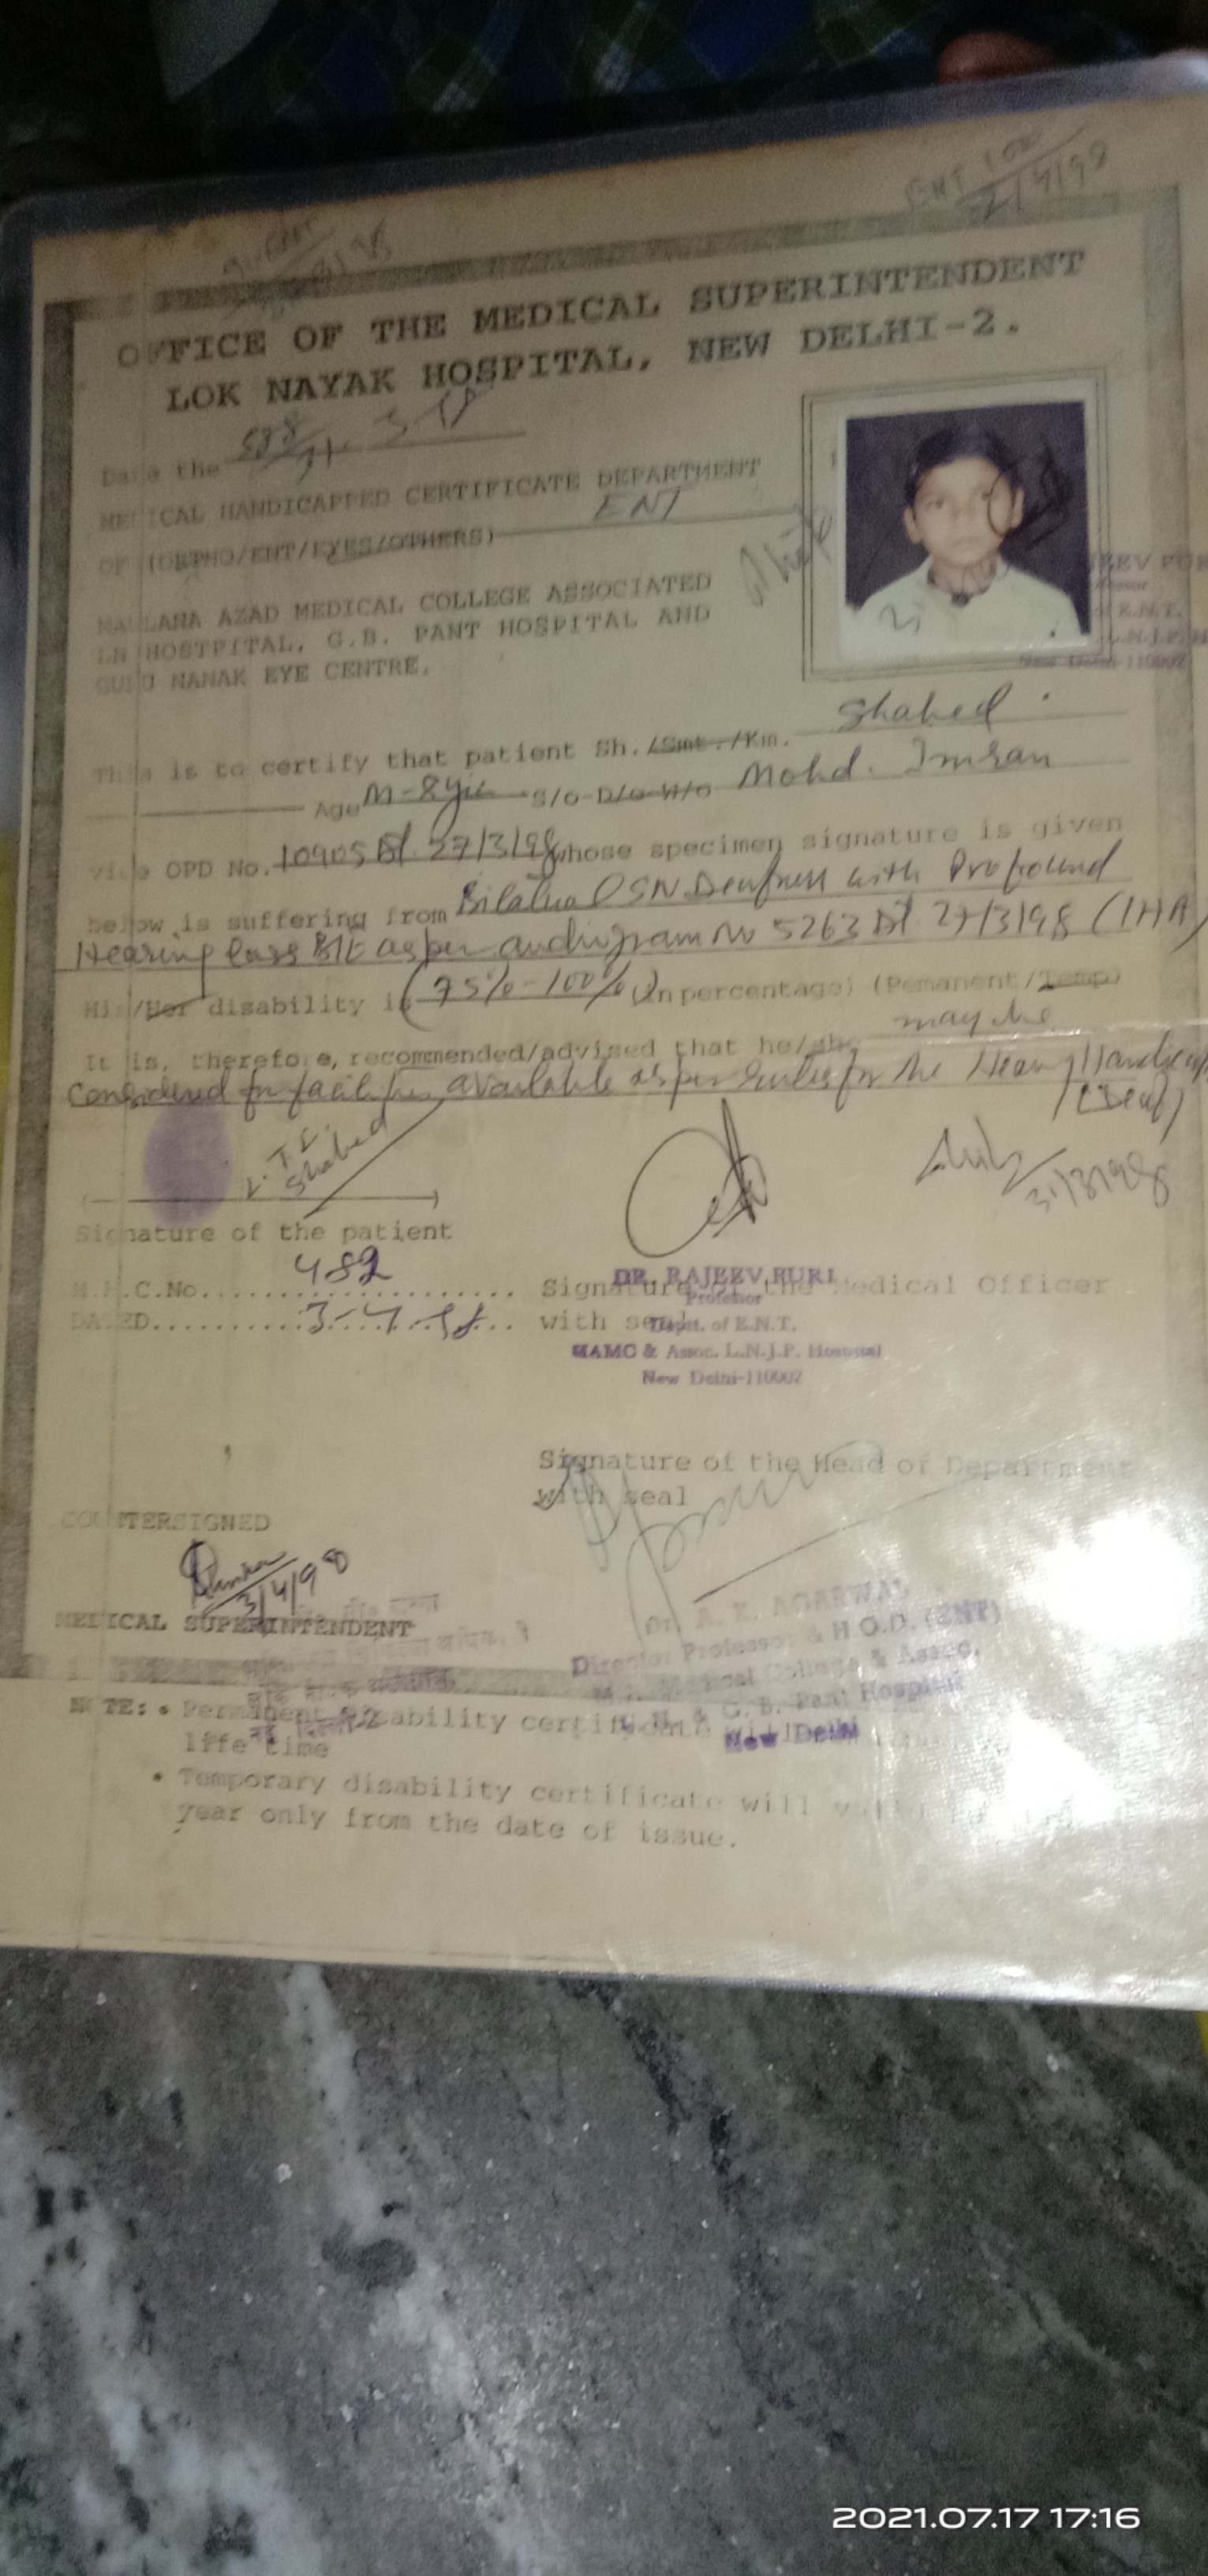 OFFICE OF THE MEDICAL SUPERINTENDENT
LOK NAYAK HOSPITAL, NEW DELHI-2.
Date the
MEDICAL HANDICAPPED CERTIFICATE DEPARTMENT
OF (ORTHO/ENT/EYES/OTHERS) ENT
MAULANA AZAD MEDICAL COLLEGE ASSOCIATED
LN HOSTPITAL, G.B. PANT HOSPITAL AND
GURU NANAK EYE CENTRE.
This is to certify that patient Sh./Smt./Km. Shahed
Age M-8yrs S/o-D/o-W/o Mohd. Imran
vide OPD No. 10905 Dt 27/3/98 whose specimen signature is given
below is suffering from Bilateral SN Deafness with Profound
Hearing loss B/E as per audiogram No 5263 Dt 27/3/98 (IHA)
His/Her disability is (75%-100%) (In percentage) (Pemanent/Temp)
It is, therefore, recommended/advised that he/she may be
Considered for facilities available as per rules for the Hearing Handicap
(Deaf)
L.T.I.
Shahed
31/3/98
Signature of the patient
M.H.C.No. 482
DATED 3-4-98
Signature of the Medical Officer
with seal
DR. RAJEEV PURI
Professor
Deptt. of E.N.T.
MAMC & Assoc. L.N.J.P. Hospital
New Delhi-110002
Signature of the Head of Department
with seal
COUNTERSIGNED
3/4/98
MEDICAL SUPERINTENDENT
Dr. A. K. AGARWAL
Director Professor & H.O.D. (ENT)
Medical College & Assoc.
L.N. & G. B. Pant Hospital
New Delhi
NOTE: • Permanent disability certificate will
life time
• Temporary disability certificate will
year only from the date of issue.
2021.07.17 17:16